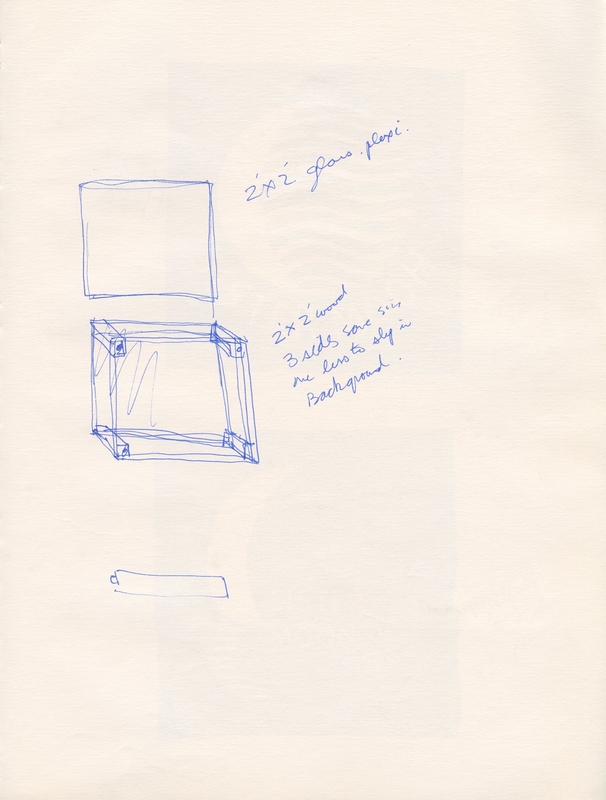 2'x2' glass. plexi.
2'x2' wood
3 sides same size
one less to slip in
Background.